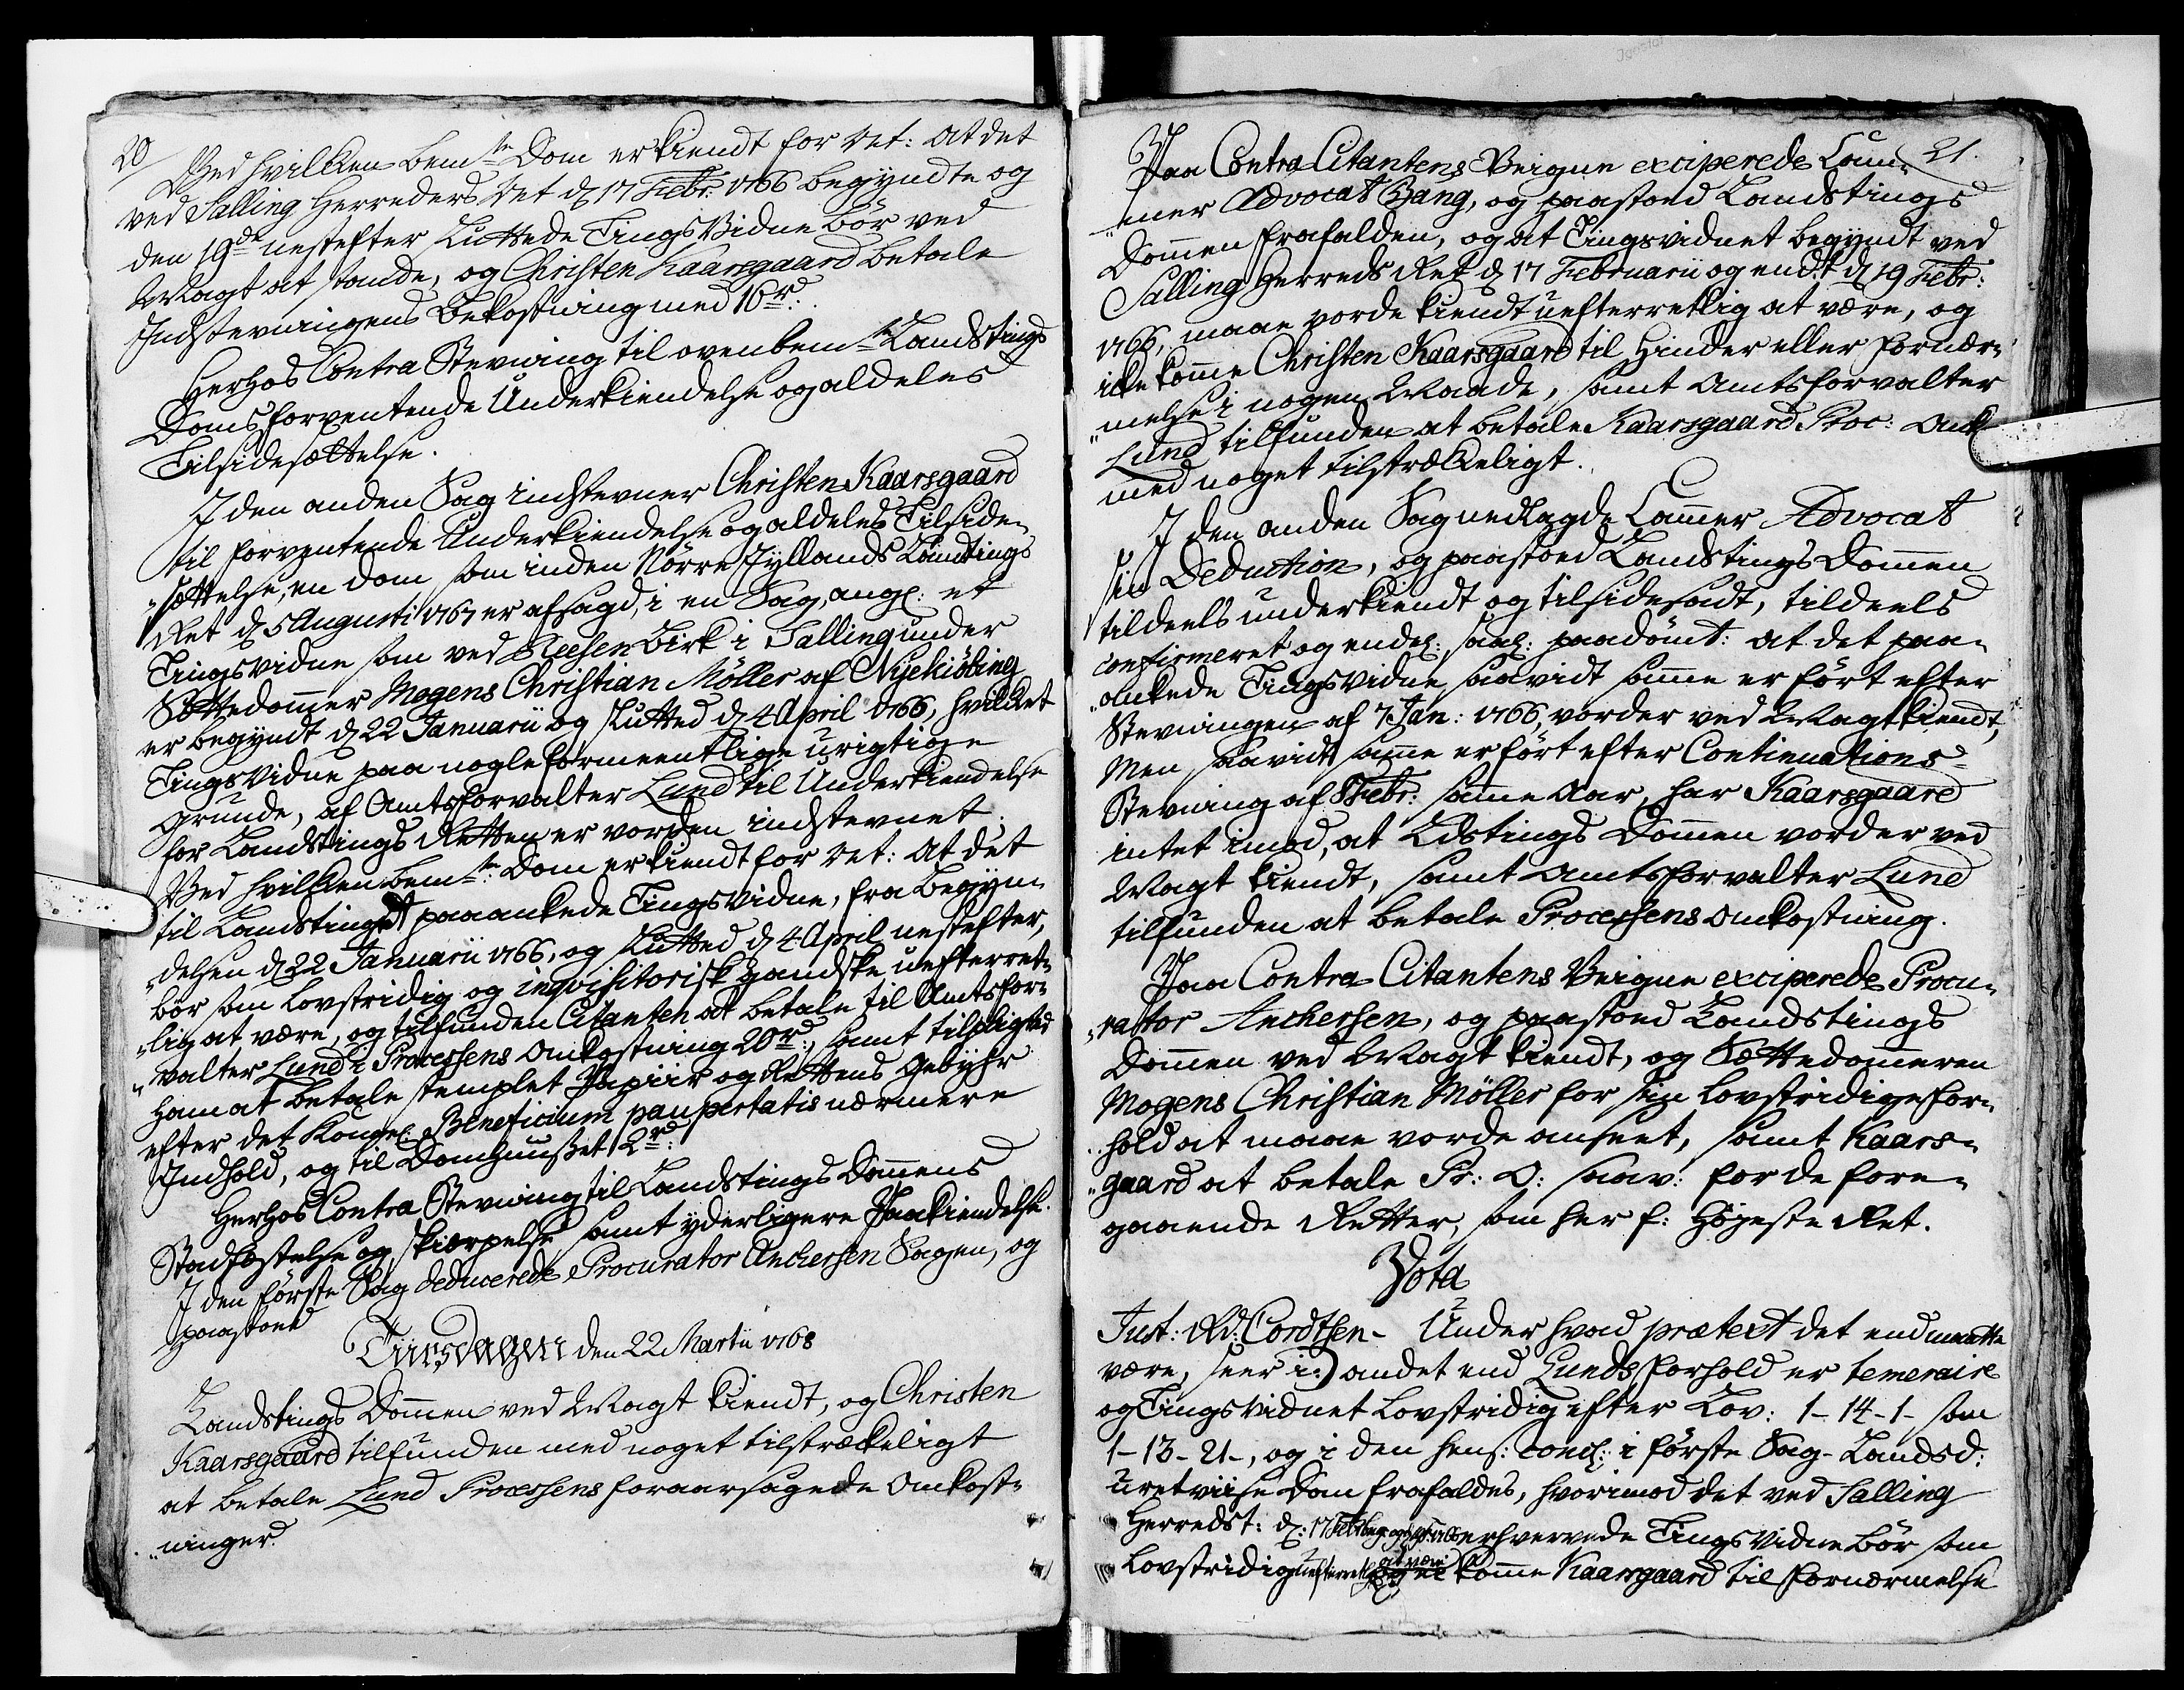 20
Ved hvilken bem.te Dom er kiendt for Ret: At det
ved Salling Herreders Ret d 17 Febr: 1766 begyndte og
den 19de nestefter sluttede Tings Vidne bör ved
Magt at stande, og Christen Kaarsgaard betale
Indstevningens Bekostning med 10 rd.
Herhos Contra Stevning til ovenbem.te Landstings
Doms forventende Underkiendelse og aldeles
Tilsidesættelse.
I den anden Sag indstevner Christen Kaarsgaard
til forventende Underkiendelse og aldeles Tilside-
"sættelse, en Dom som inden Nörre Jyllands Landtings
Ret d 5 Augusti 1767 er afsagd, i en Sag, angl: et
Tingsvidne som ved Birk i Salling under
Sættedommer Mogens Christian Möller af Nyekiöbing
er begyndt d 22 Januarii og slutted d 4 April 1766, hvilket
Tings Vidne paa nogle formeentlige urigtige
Grunde, af Amtsforvalter Lund til Underkiendelse
for Landstings Retten er vorden indstevnet.
Ved hvilken bem.te Dom er kiendt for Ret: At det
til Landstinget paaankede Tings Vidne, fra Begyn-
"delsen d 22 Januarii 1766, og slutted d 4 April nestefter,
bör som lovstridig og inqvisitorisk gandske uefterret-
"lig at være, og tilfunden Citanten at betale til Amtsfor-
"valter Lund i Processens Omkostning 20 rd, samt tilpligted
ham at betale stemplet Papiir og Rettens Gebyhr
efter det Kongl: Beneficium paupertatis nærmere
Indhold, og til Domhuuset 2 rd.
Herhos Contra Stevning til Landstings Dommens
Stadfæstelse og Skiærpelse samt yderligere Paakiendelse.
I den förste Sag deducerede Procurator Anchersen Sagen, og
paastoed
Tiirsdagen den 22 Martii 1768
Landstings Dommen ved Magt kiendt, og Christen
Kaarsgaard tilfunden med noget tilstrækkeligt
at betale Lund Processens foraarsagede Omkost-
"ninger.
21.
Paa Contra Citantens Veigne exciperede Cam-
"mer Advocat Bang, og paastoed Landstings
Dommen frafalden, og at Tingsvidnet begyndt ved
Salling Herreds Ret d 17 Februarii og endt d 19 Febr:
1766, maae vorde kiendt uefterretlig at være, og
ikke komme Christen Kaarsgaard til Hinder eller Fornær-
"melse i nogen Maade, samt Amtsforvalter
Lund tilfunden at betale Kaarsgaard Proc: Omk
med noget tilstrækkeligt.
I den anden Sag nedlagde Cammer Advocat
sin Deduction, og paastoed Landstings Dommen
tildeels underkiendt og tilsidesadt, tildeels
confirmeret og endel: saal: paadömt: at det paa-
"ankede Tingsvidne saavidt samme er fört efter
Stevningen af 7 Jan: 1766, vorder ved Magt kiendt,
Men saavidt samme er fört efter Continuations-
Stevning af 8 Febr: samme Aar, har Kaarsgaard
intet imod, at Ldstings Dommen vorder ved
Magt kiendt, samt Amtsforvalter Lund
tilfunden at betale Processens Omkostning.
Paa Contra Citantens Veigne exciperede Procu-
"rator Anchersen, og paastoed Landstings
Dommen ved Magt kiendt, og Sættedommeren
Mogens Christian Möller for sin lovstridige For-
"hold at maae vorde anseet, samt Kaars-
"gaard at betale Pr: O: saav: for de fore-
gaaende Retter, som her f: Höyeste Ret.
Vota
Just: Rd: Cordtsen- Under hvad prætext det end maatte
være, seer i:) andet end Lunds Forhold er temerair
og Tings Vidnet lovstridig efter Lov: 1-14-1- som
1-13-21-, og i den Hens: concl: i förste Sag- Landsd:
uretviise Dom frafaldes, hvorimod det ved Salling
Herredst: d: 17 Febr. erhvervede Tings Vidne bör som
lovstridig uefterretl at være og ei komme Kaarsgaard til Fornærmelse